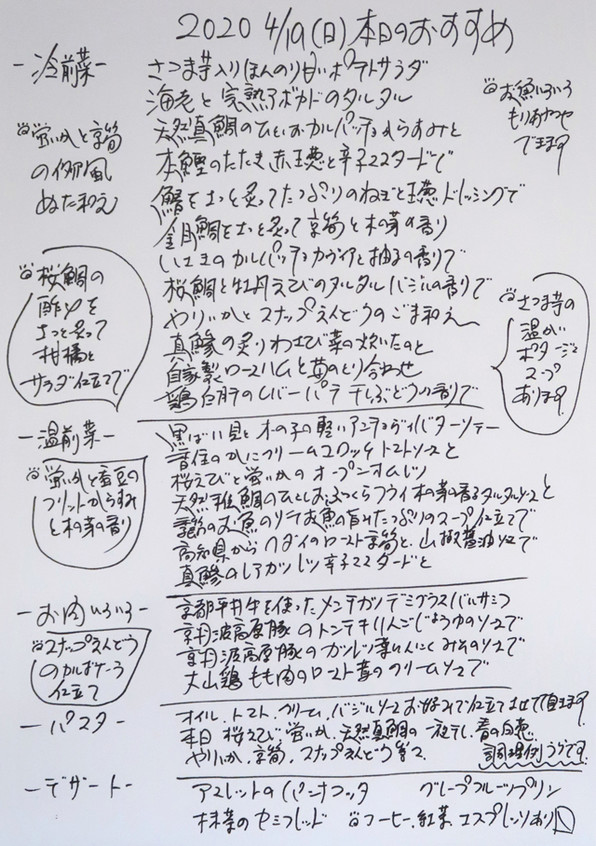 2020 4/19(日)本日のおすすめ
-冷前菜-
さつま芋入りほんのり甘いポテトサラダ
海老と完熟アボカドのタルタル
天然真鯛のひとしおカルパッチョからすみと
本鰹のたたき、赤玉葱と辛子マスタードで
鰆をさっと炙ってたっぷりのねぎと玉葱ドレッシングで
金目鯛をさっと炙って京筍と木の芽の香り
いさきのカルパッチョ カヴィアと柚子の香りで
桜鯛と牡丹えびのタルタル バジルの香りで
やりいかとスナップえんどうのごま和え
真鯵の炙りわさび菜の炊いたのと
自家製ロースハムと苺のとり合わせ
鶏白肝のレバーパテ 干しぶどうの香りで
お魚いろいろ
もりあわせ
できます
蛍いかと京筍
の伊風
ぬた和え
桜鯛の
酢〆を
さっと炙って
柑橘と
サラダ仕立てで
さつま芋の
温かい
ポタージュ
スープ
あります
-温前菜-
黒ばい貝ときのこの軽いアンチョヴィバターソテー
香住のかにクリームコロッケ トマトソースと
桜えびと蛍いかのオープンオムレツ
天然稚鯛のひとしおふっくらフライ 木の芽香るタルタルソースと
お魚のソテお魚の旨みたっぷりのスープ仕立てで
高知県から のロースト京筍と、山椒醤油ソースで
真鯵のレアカツレツ辛子マスタードと
蛍いかと香豆の
フリットからすみ
と木の芽の香り
-お肉いろいろ-
京都平井牛を使ったメンチカツ デミグラスバルサミコ
京丹波高原豚のトンテキ りんごしょうゆのソースで
京丹波高原豚のカツレツ 葉にんにくみそのソースで
大山鶏もも肉のロースト 苺のクリームソースで
スナップえんどう
のカルボナーラ
仕立て
-パスタ-
オイル、トマト、クリーム、バジルソース お好みで仕立てさせて頂きます
本日 桜えび、蛍いか、天然真鯛の一夜干し、春の白葱
やりいか、京筍、スナップえんどう等で
調理例うらです
-デザート-
のパンナコッタ グレープフルーツプリン
抹茶のセミフレッド コーヒー、紅茶、エスプレッソあり